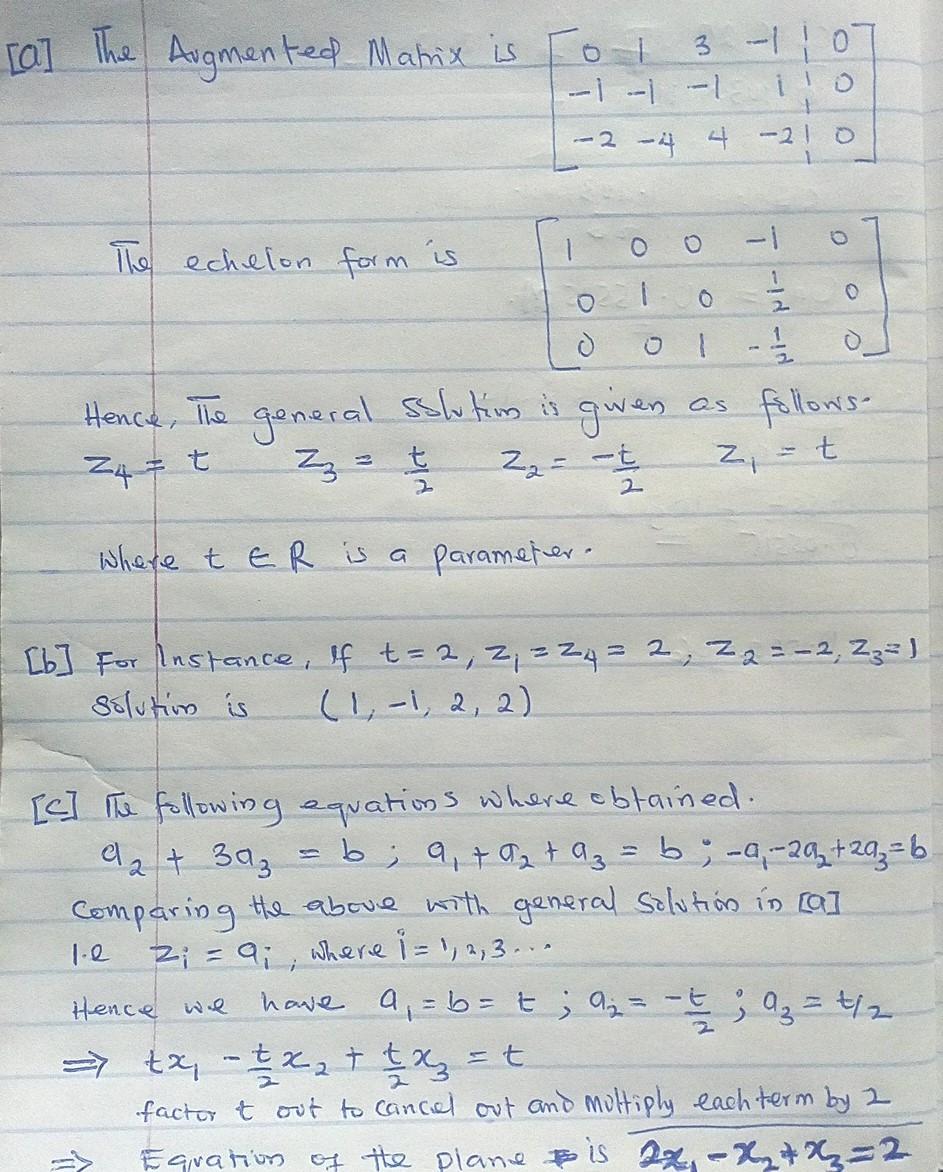 [a] The Augmented Matrix is [ 0 1 3 -1 ¦ 0
-1 -1 -1 1 ¦ 0
-2 -4 4 -2 ¦ 0 ]
The echelon form is [ 1 0 0 -1 0
0 1 0 1/2 0
0 0 1 -1/2 0 ]
Hence, The general solution is given as follows-
Z₄ = t Z₃ = t/2 Z₂ = -t/2 Z₁ = t
Where t ∈ R is a parameter.
[b] For Instance, If t = 2, Z₁ = Z₄ = 2, Z₂ = -2, Z₃ = 1
Solution is (1, -1, 2, 2)
[c] The following equations where obtained.
a₂ + 3a₃ = b ; a₁ + a₂ + a₃ = b ; -a₁ - 2a₂ + 2a₃ = b
Comparing the above with general solution in [a]
I.e Zᵢ = aᵢ, where i = 1, 2, 3 ...
Hence we have a₁ = b = t ; a₂ = -t/2 ; a₃ = t/2
⇒ tx₁ - t/2 x₂ + t/2 x₃ = t
factor t out to cancel out and multiply each term by 2
⇒ Equation of the plane is 2x₁ - x₂ + x₃ = 2